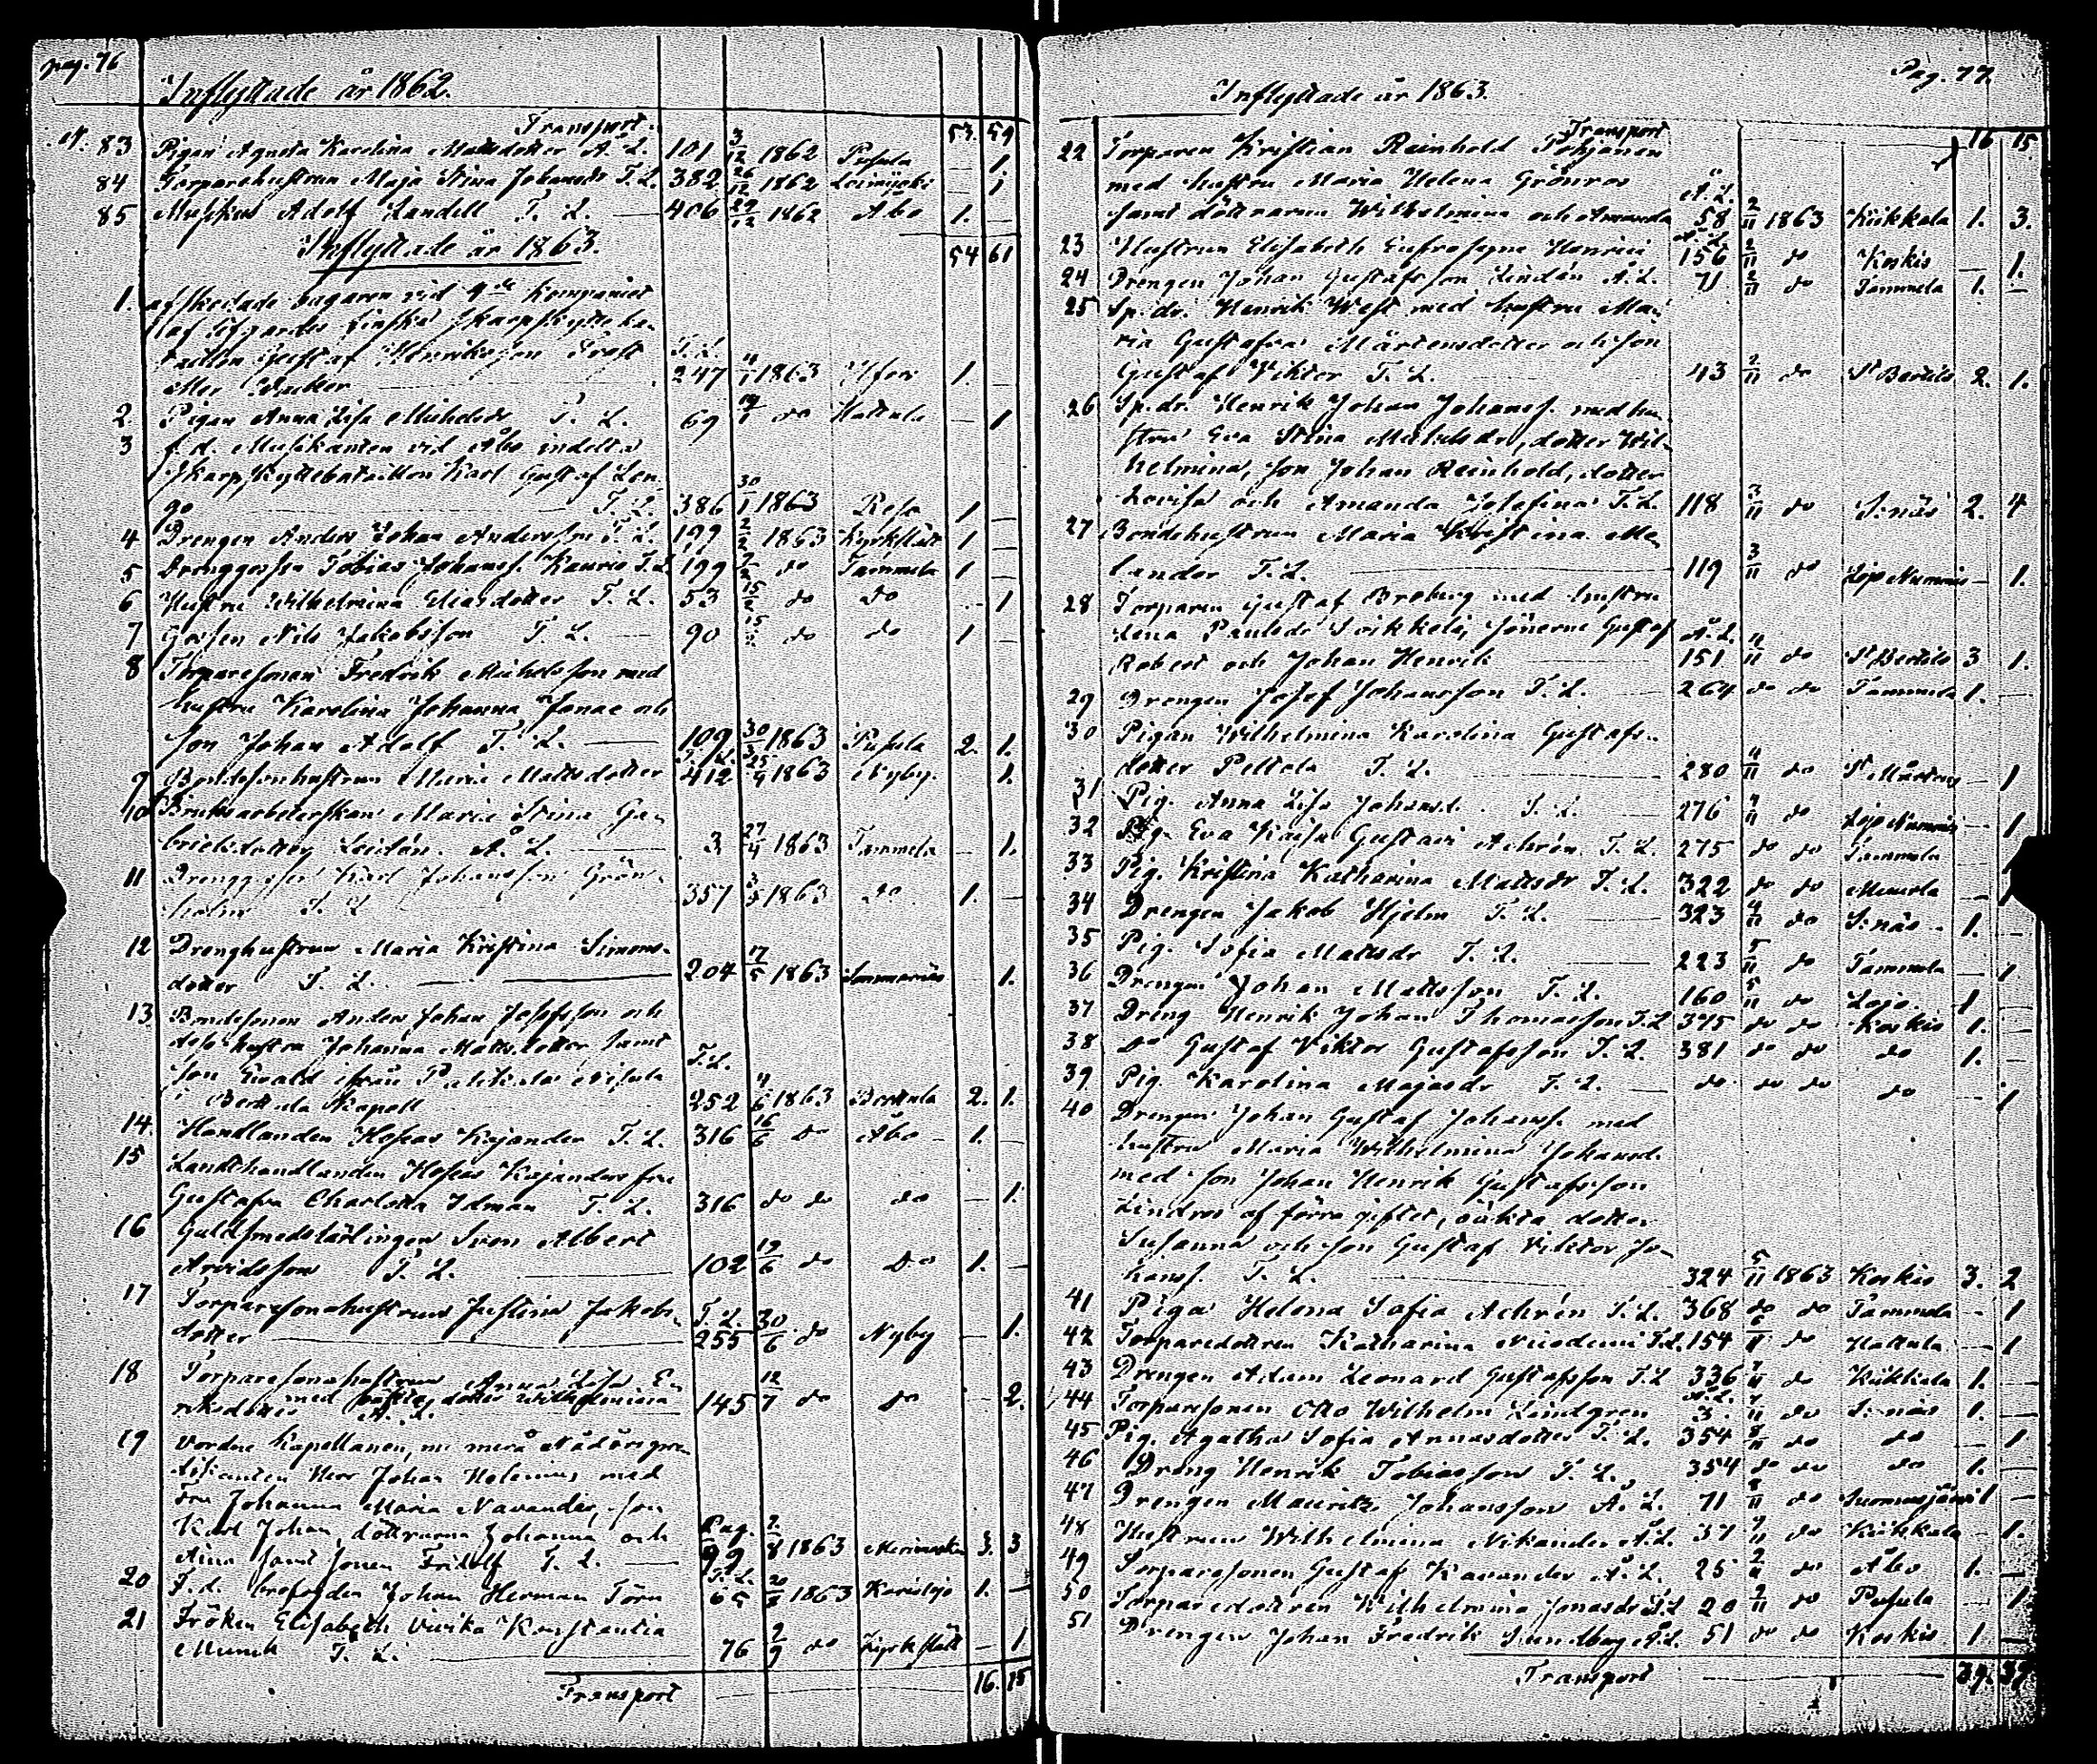 pag. 76
Inflyttade år 1862.
Transport. 53. 59
N. 83 Pigan Agneta Karolina Mattsdotter Å. L. 101 3/12 1862 Pusula — 1.
84 Torparehustrun Maja Stina Johansdr T. L. 382 26/12 1862 Loimijoki — 1.
85 Musikus Adolf Landell T. L. — 406 29/12 1862 Åbo 1. —
54 61
Inflyttade år 1863.
1. afskedade bagaren vid 4de Kompaniet
af lifgardes finska skarpskytte ba-
taillon Gustaf Henriksson Frost T. L.
eller 247 4/1 1863 1. —
2. Pigan Anna Lisa Michelsdr T. L. 69 19/1 do Hattula — 1
3 f. d. Musikanten vid Åbo indelta
Skarpskyttebataillon Karl Gustaf Lon-
go T. L. 386 30/1 1863 Reso 1 —
4 Drengen Anders Johan Andersson T. L. 199 2/2 1863 Kyrkslätt 1 —
5 Drenggossen Tobias Johanss. Kaurio T. L. 199 2/2 do Tammela 1 —
6 Hustru Wilhelmina Eliasdotter T. L. 53 15/2 do do — 1
7 Gossen Nils Jakobsson T. L. — 90 15/2 do do 1 —
8 Torparesonen Fredrik Michelsson med
hustru Karolina Johanna Jonae och
son Johan Adolf T. L. — 109 30/3 1863 Pusula 2. 1.
9 Bondesonhustrun Maria Mattsdotter T. L. 412 25/4 1863 Nyby. 1.
10 Bruksarbeterskan Maria Stina Ga-
brielsdotter Leidén. Å. L. — 3 27/4 1863 Tammela — 1.
11 Drenggossen Karl Johansson Grön-
holm T. L. 357 3/5 1863 do 1. —
12 Drenghustrun Maria Kristina Simons-
dotter T. L. — 204 17/5 1863 Sommarnäs 1.
13 Bondesonen Anders Johan Josefsson och
dess hustru Johanna Mattsdotter samt T. L.
son Evald ifrån Nisula
i Bertula Kapell 252 4/6 1863 Bertula 2. 1.
14. Handlanden Hoseas Kajander T. L. 316 16/6 do Åbo — 1. —
15 Landthandlanden Hoseas Kajanders fru
Gustafva Charlotta Idman T. L. 316 do do do — 1.
16 Guldsmedslärlingen Sven Albert
Arvidsson T. L. — 102 19/6 do do 1. —
17 Torparesonshustrun Justina Jakobs- T. L.
dotter — 255 30/6 do Nyby — 1.
18 Torparesonshustrun Anna Lisa E-
riksdotter med oäkta dotter Wilhelmina
Å. L. — 145 12/7 do do — 2.
19 Vordne Kapellanen, nu mera Nådårspre-
dikanten Herr Johan Helenius med
Fru Johanna Maria Navander, son
Karl Johan, döttrarna Johanna och Pag.
Aina samt sonen Fridolf T. L. — 99 2/8 1863 Merimasku 3. 3
20 F. d. brofogden Johan Herman Törn T. L. 65 20/8 1863 Karislojo 1. —
21 Fröken Elisabeth Vivika Konstantia
Munck T. L. — 76 2/9 do Kyrkslätt — 1
Transport 16. 15
Pag. 77
Inflyttade år 1863.
Transport 16 15.
22 Torparen Kristian Reinhold Pohjanen
med hustru Maria Helena Grönros Å. L.
samt döttrarna Wilhelmina och Amanda 58 2/11 1863 Kiikkala 1. 3.
23 Hustrun Elisabeth Eufrosyne Henrici Å. L. 156 2/11 do Koskis — 1.
24 Drengen Johan Gustafsson Lindén Å. L. 71 2/11 do Tammela 1. —
25 Sp.dr. Henrik West med hustru Ma-
ria Gustafva Mårtensdotter och son
Gustaf Viktor T. L. 43 2/11 do St Bertils 2. 1.
26 Sp.dr. Henrik Johan Johanss. med hu-
stru Eva Stina Michelsdr, dotter Wil-
helmina, son Johan Reinhold, dotter
Lovisa och Amanda Josefina T. L. 118 3/11 do S:näs 2. 4
27 Bondehustrun Maria Kristina Me-
lander T. L. — 119 3/11 do Lojo Nummis — 1.
28 Torparen Gustaf Broberg med hustru
Lena Paulsdr Soikkeli, sönerne Gustaf Å. L.
Robert och Johan Henrik — 151 4/11 do St Bertils 3 1.
29 Drengen Josef Johansson T. L. — 264 do do Tammela 1. —
30 Pigan Wilhelmina Karolina Gustafs-
dotter Peltola T. L. — 280 4/11 do St Mårtens — 1
31 Pig. Anna Lisa Johansd. T. L. 276 4/11 do Lojo Nummis — 1
32 Pig. Eva Kaisa Gustavi Achrén. T. L. 275 do do Tammela —
33 Pig. Kristina Katharina Mattsdr T. L. 322 do do Mimola — 1
34 Drengen Jakob Hjelm T. L. — 323 4/11 do S:näs 1. —
35 Pig. Sofia Mattsdr T. L. — 223 5/11 do Tammela — 1
36 Drengen Johan Mattsson T. L. 160 5/11 do Lojo 1 —
37 Dreng Henrik Johan Thomasson T. L. 375 do do Koskis 1. —
38 Do Gustaf Viktor Gustafsson T. L. 381 do do do 1. —
39 Pig. Karolina Majasdr T. L. — do do do do — 1
40 Drengen Johan Gustaf Johanss. med
hustru Maria Wilhelmina Johansd.
med son Johan Henrik Gustafsson
Lindros af förra giftet, oäkta dotter
Susanna och son Gustaf Viktor Jo-
hanss. T. L. — 324 5/11 1863 Koskis 3. 2
41 Piga Helena Sofia Achrén T. L. 368 do do Tammela — 1
42 Torparedottren Katharina Nicodemi T. L. 154 6/11 do Hattula — 1
43 Drengen Adam Leonard Gustafsson T. L. 336 7/11 do Kiikkala 1. —
44 Torparesonen Otto Wilhelm Lindgren Å. L. 3. 7/11 do S:näs 1. —
45 Pig. Agatha Sofia Annasdotter T. L. 354 8/11 do do — 1
46 Dreng Henrik Tobiasson T. L. 354 do do do 1. —
47 Drengen Mauritz Johansson Å. L. 71 8/11 do Suomusjärvi 1 —
48 Hustrun Wilhelmina Nikander Å. L. 37 9/11 do Kiikkala — 1.
49 Torparesonen Gustaf Kavander Å. L. 25 2/11 do Åbo 1. —
50 Torparedottren Wilhelmina Jonasdr T. L. 20 2/11 do Pusula — 1
51 Drengen Johan Fredrik Sundberg T. L. 51 do do Koskis 1 —
Transport 39. 37